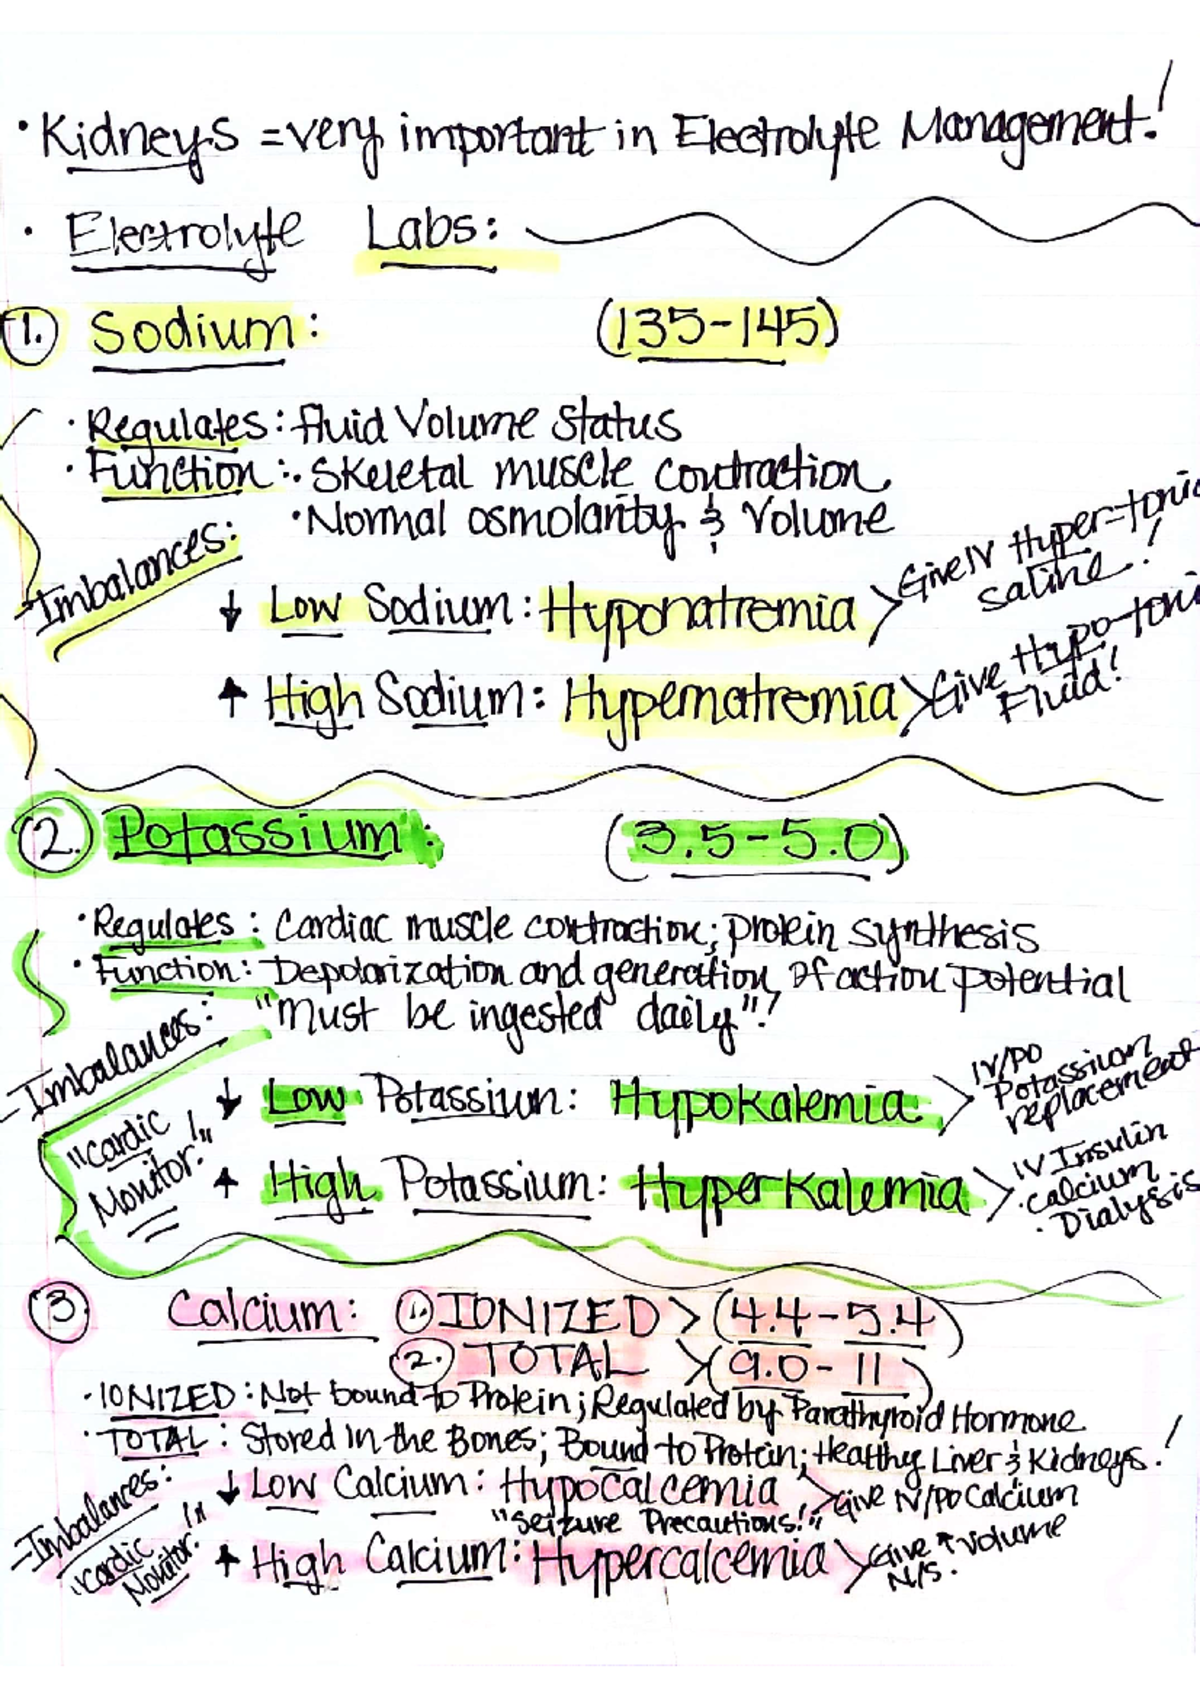 • Kidneys = very important in Electrolyte Management!
• Electrolyte Labs:
1. Sodium: (135-145)
• Regulates: Fluid Volume Status
• Function: • Skeletal muscle contraction
• Normal osmolarity & Volume
Imbalances:
↓ Low Sodium: Hyponatremia > Give IV Hyper-tonic saline!
↑ High Sodium: Hypernatremia > Give Hypo-tonic Fluid!
2. Potassium: (3.5-5.0)
• Regulates: Cardiac muscle contraction; protein synthesis
• Function: Depolarization and generation of action potential
"Must be ingested daily"!
Imbalances:
"Cardic Monitor!"
↓ Low Potassium: Hypokalemia > IV/PO Potassium replacement
↑ High Potassium: HyperKalemia > IV Insulin
• Calcium
• Dialysis
3. Calcium: 1. IONIZED > (4.4-5.4)
2. TOTAL > (9.0-11)
• IONIZED: Not bound to Protein; Regulated by Parathyroid Hormone
• TOTAL: Stored in the Bones; Bound to Protein; Healthy Liver & Kidneys!
Imbalances:
"Cardic Monitor!"
↓ Low Calcium: Hypocalcemia > Give IV/PO Calcium
"Seizure Precautions!"
↑ High Calcium: Hypercalcemia > Give ↑ Volume N/S.